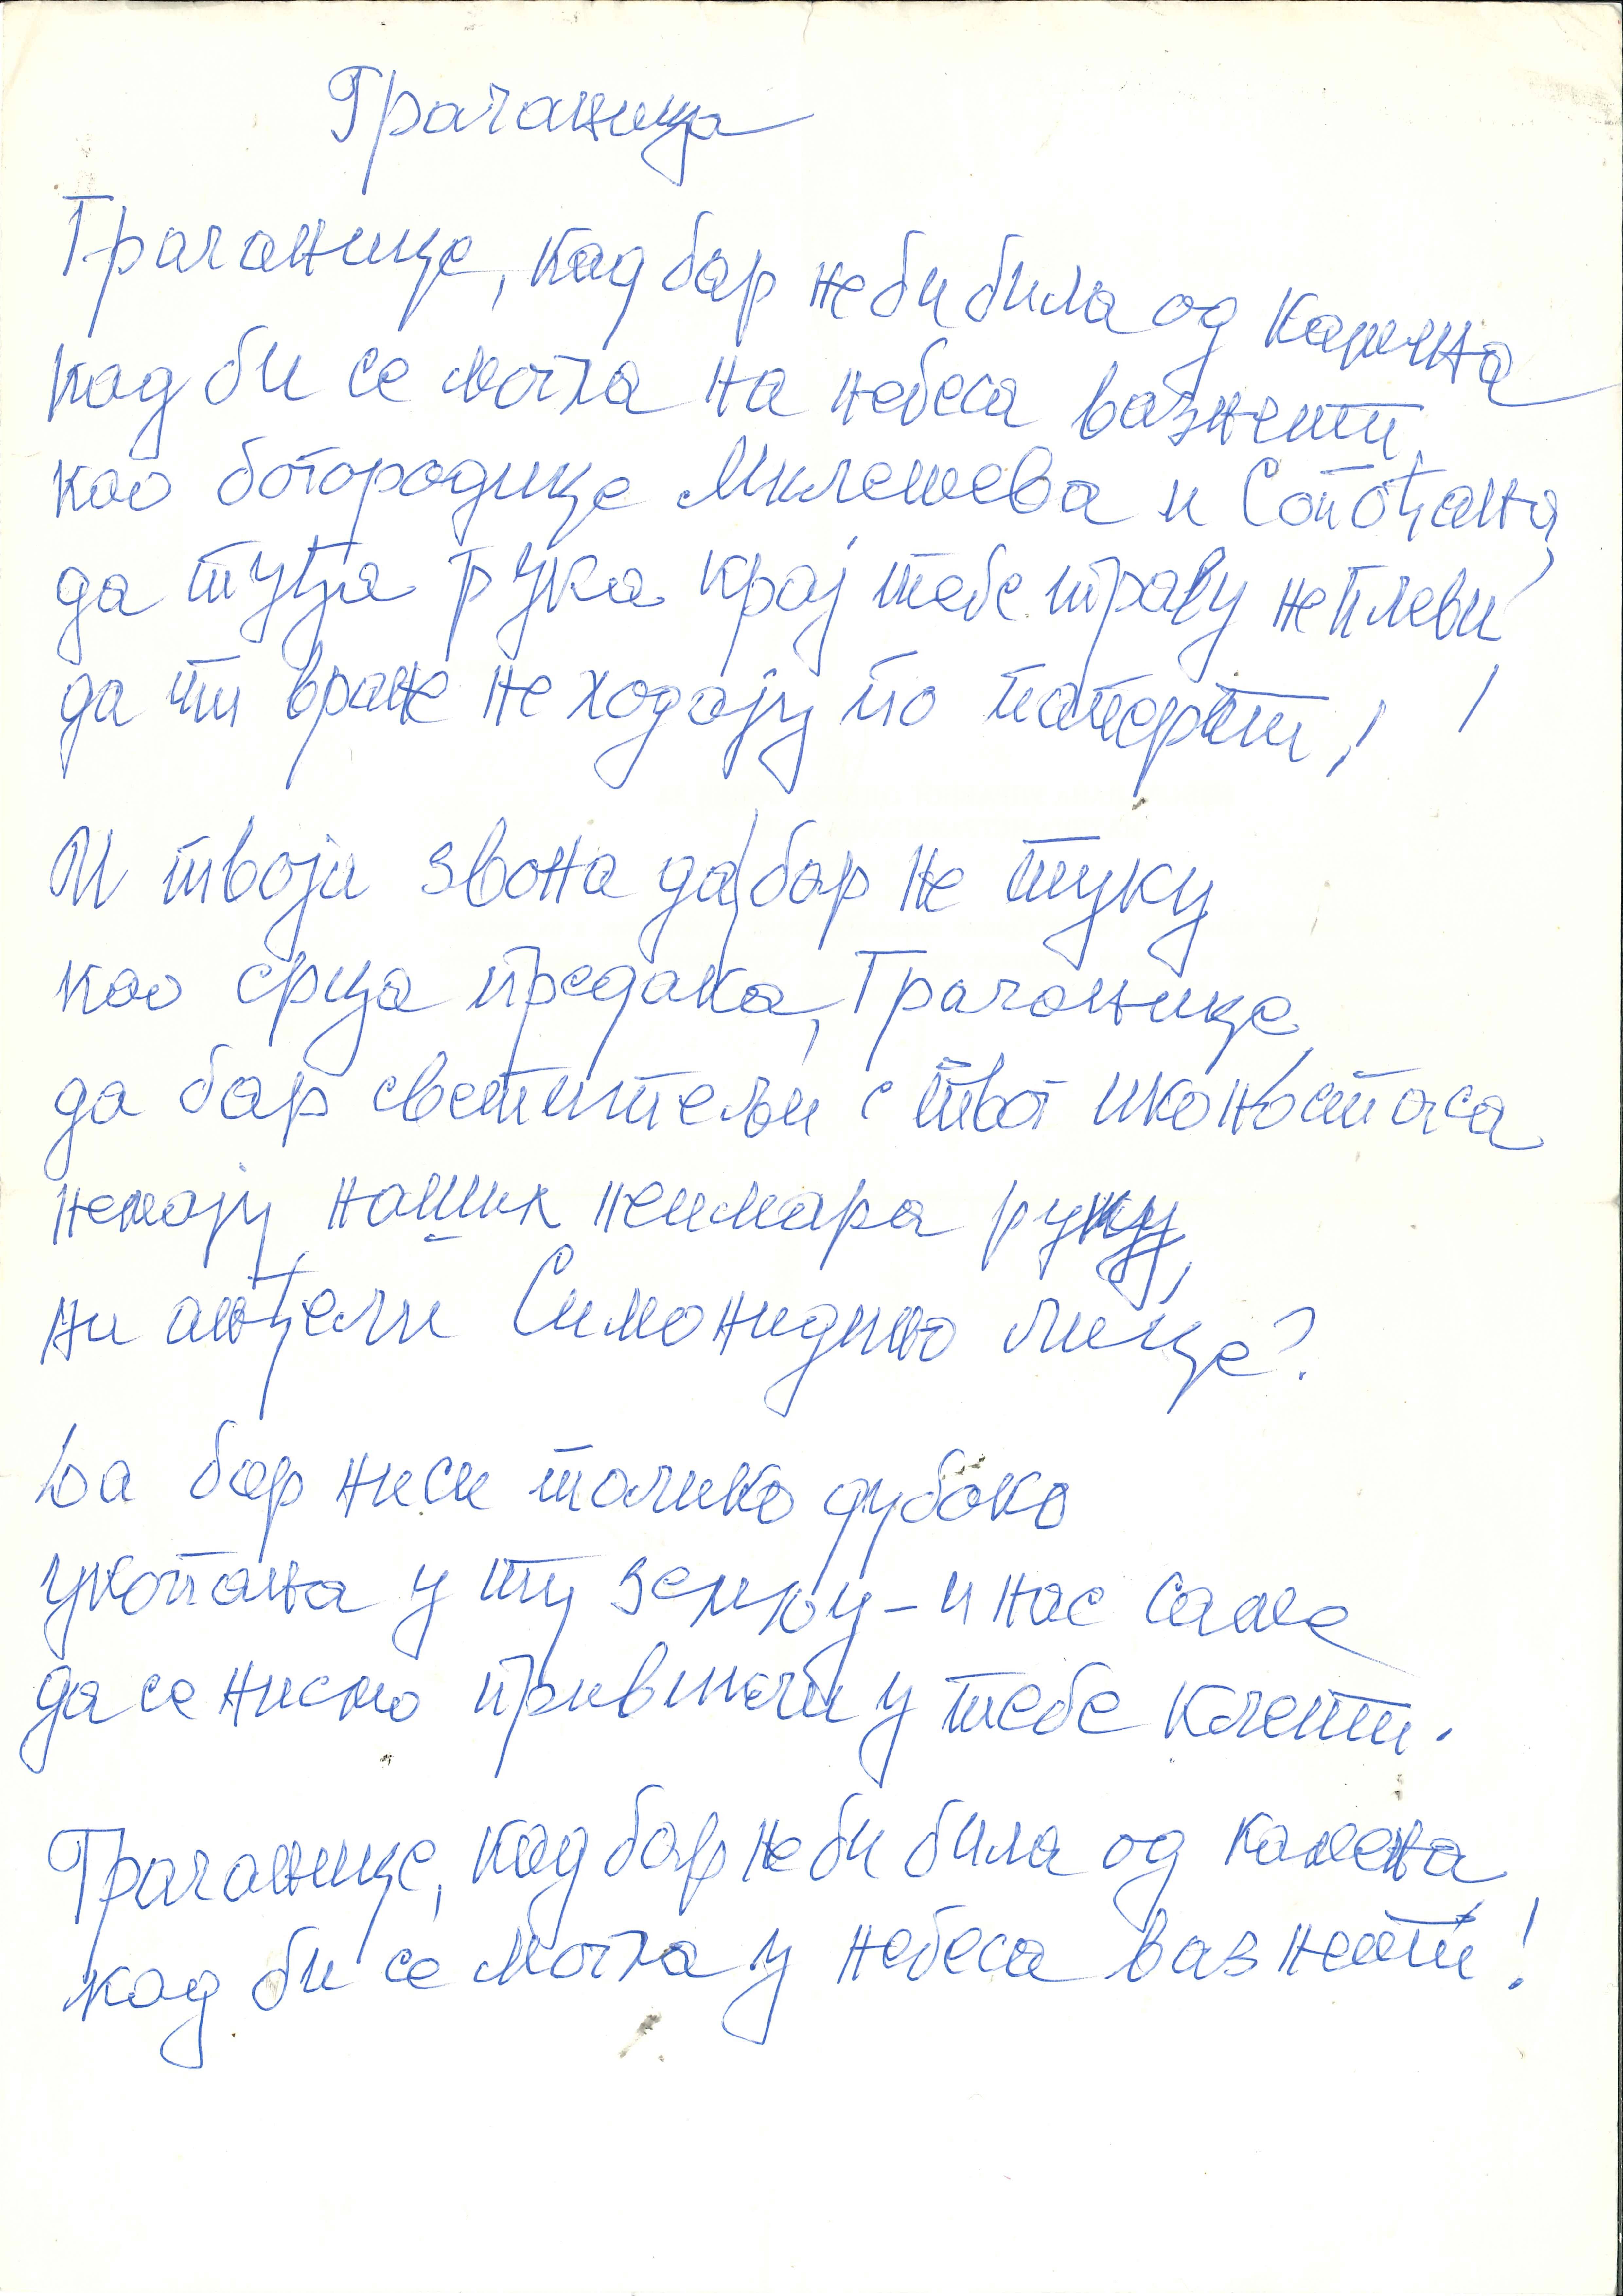 Грачаница
Грачанице, кад бар не би била од камена
кад би се могла на небеса вазнети,
као богородице Милешева и Сопоћана,
да туђа рука крај тебе траву не плеви
да ти вране не ходају по паперти! !
И твоја звона да бар не туку
као срца предака, Грачанице,
да бар светитељи с твог иконостаса
немају наших неимара руку,
ни анђели Симонидино лице?
Да бар ниси толико дубоко
укопана у ту земљу - и нас саме
да се нисмо привикли у тебе клети.
Грачанице, кад бар не би била од камена,
кад би се могла у небеса вазнети!